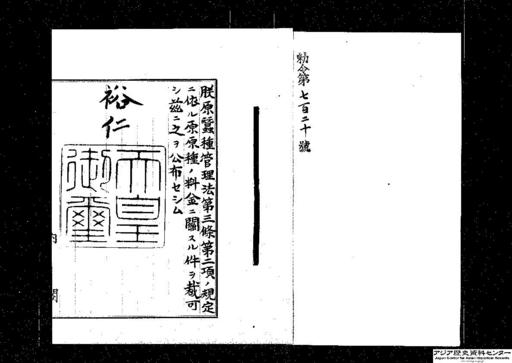 勅令第七百二十號
朕原蠶種管理法第三條第二項ノ規定
ニ依ル原原種ノ料金ニ關スル件ヲ裁可
シ茲ニ之ヲ公布セシム
裕仁
天皇
御璽
内閣
アジア歴史資料センター
Japan Center for Asian Historical Records